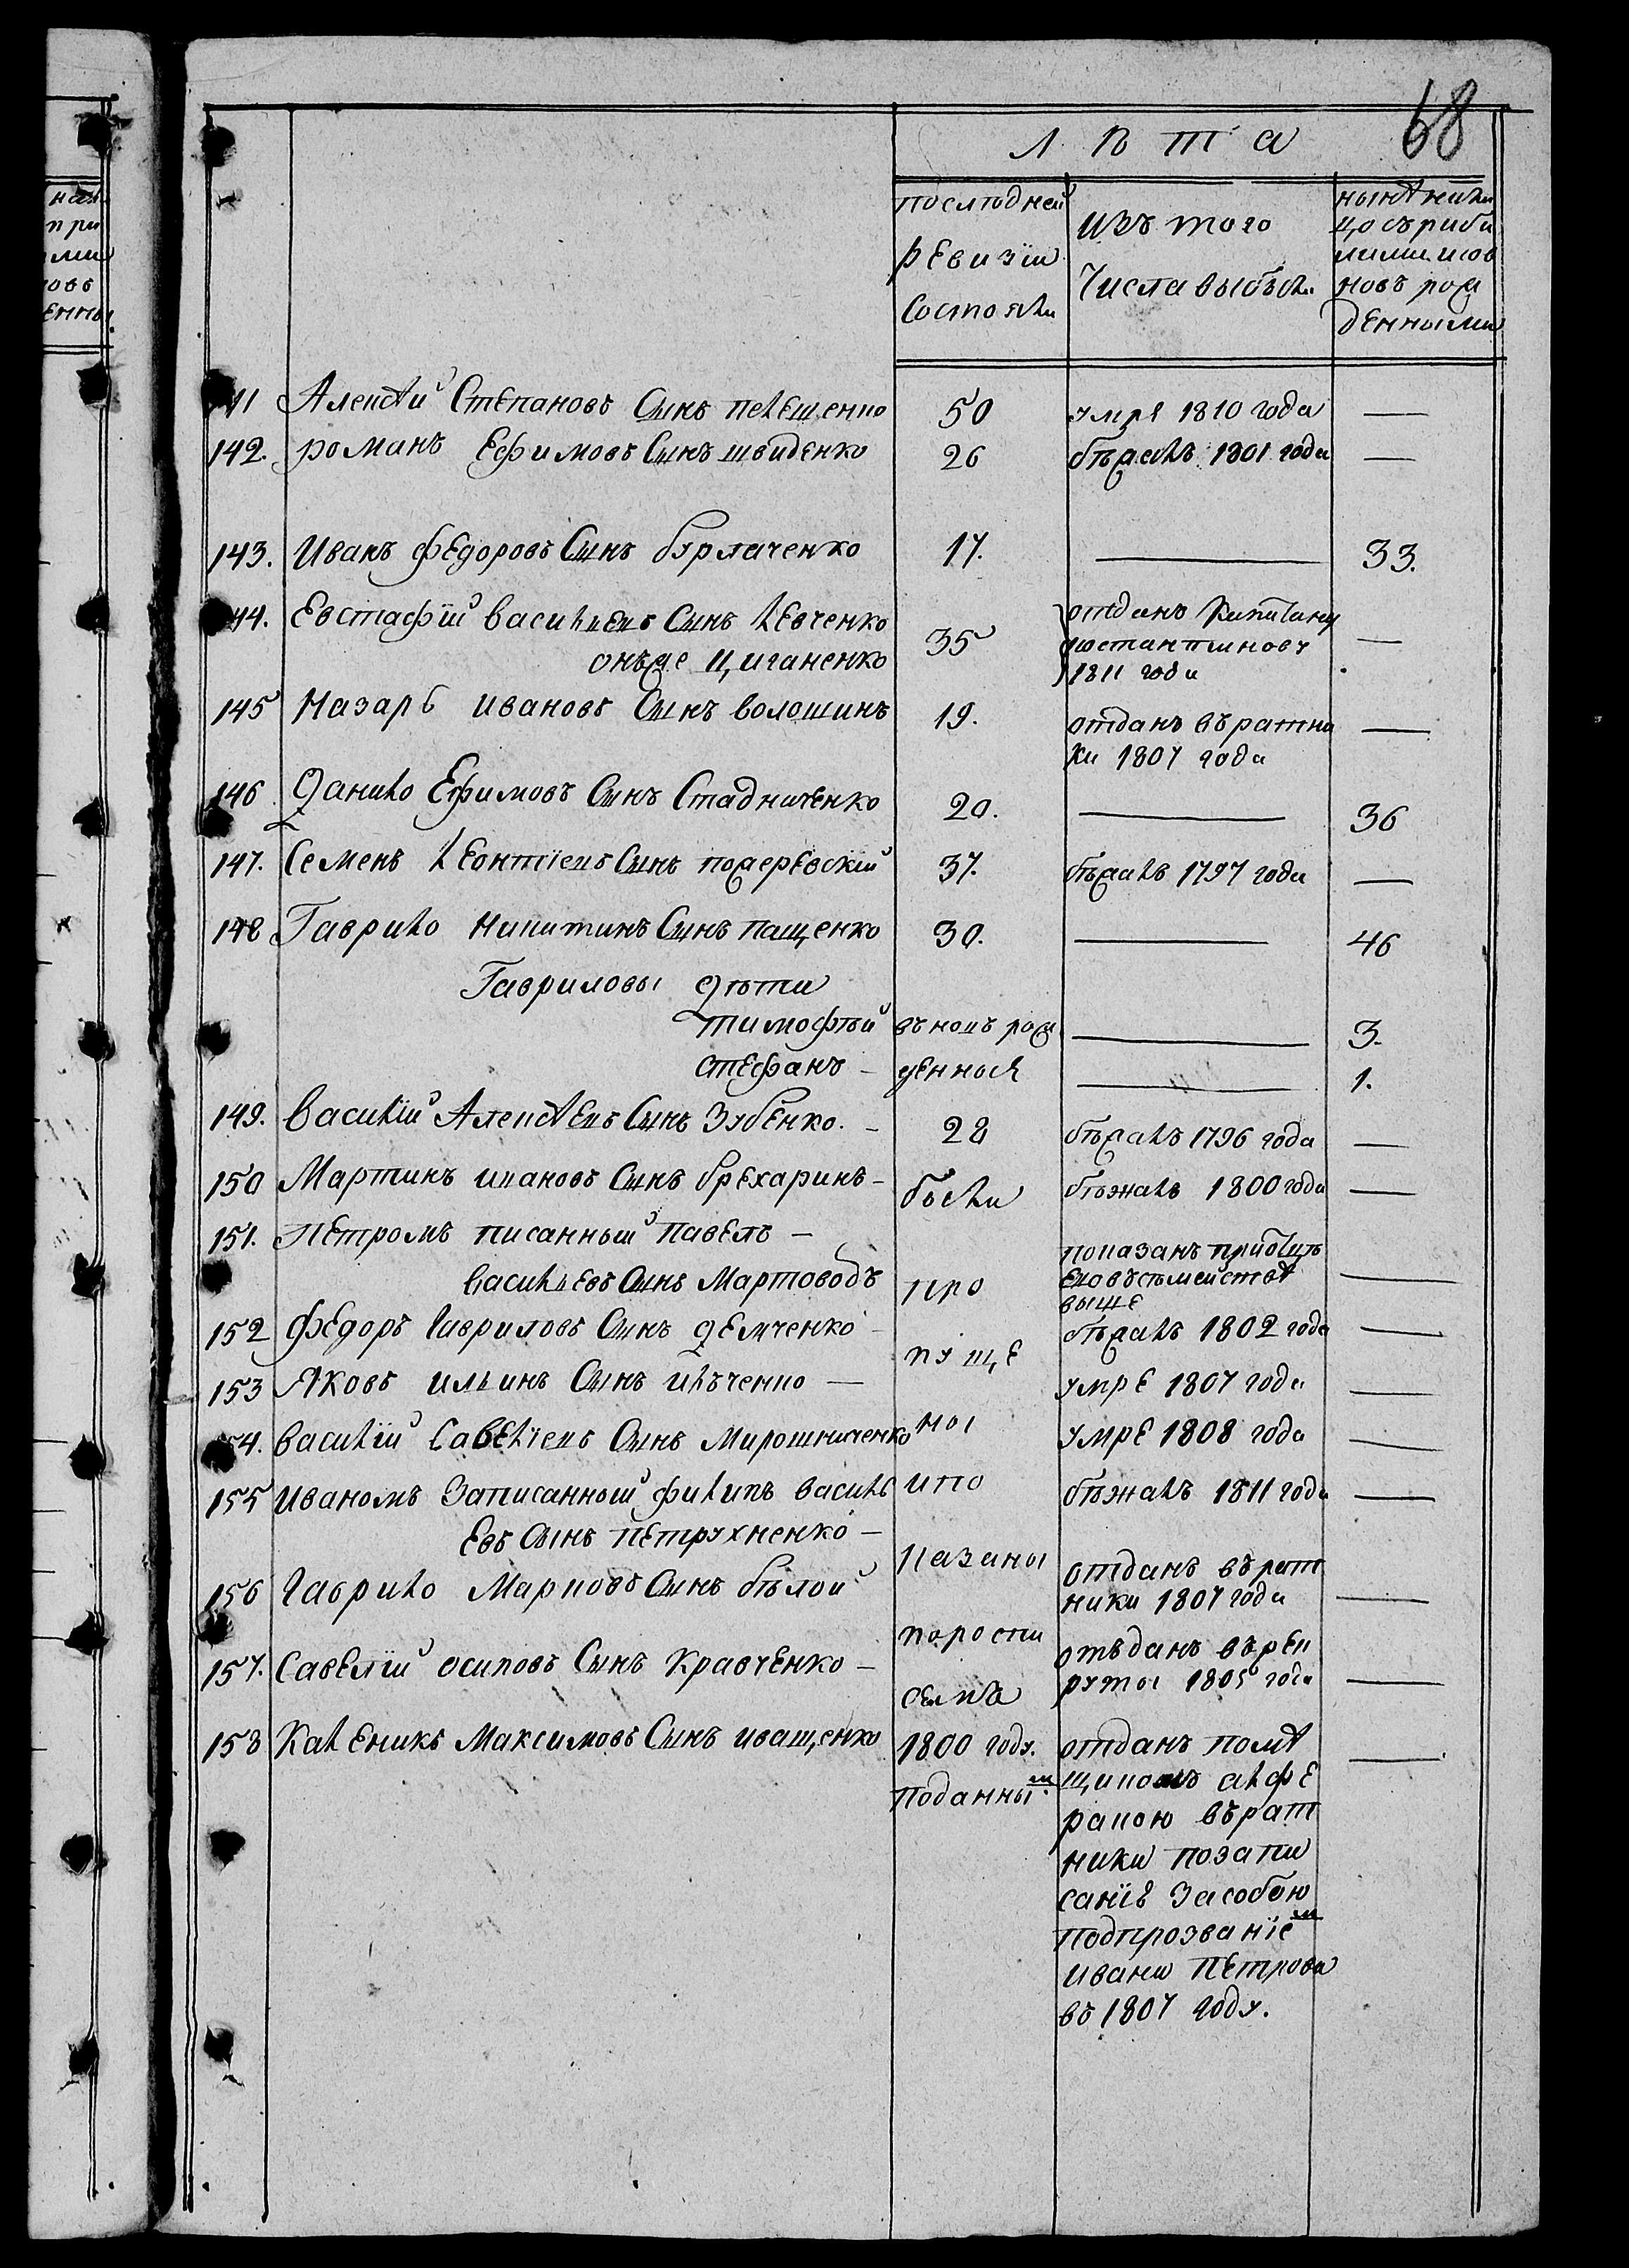 68
Лѣта
последней
ревизіи
состояли
изъ того
Числа выбыли
нынѣ на ли
цо съ приби
лими и вов
новъ рож
денными
141 Алексѣй Степановъ Сынъ пелешенко 50 умре 1810 года —
142. романъ Ефимовъ Сынъ швиденко 26 бѣжалъ 1801 года —
143. Иванъ федоровъ Сынъ бурлаченко 17. — 33.
144. Евстафій васильевъ Сынъ левченко 35 отданъ капитану —
онъже циганенко костантинову
1811 года
145 Назаръ ивановъ Сынъ волошинъ 19. отданъ въ ратни —
ки 1807 года
146 Данило Ефимовъ Сынъ Стадниченко 20. — 36
147. Семенъ леонтіевъ Сынъ пожеревскій 37. бѣжалъ 1797 года —
148 Гаврило никитинъ Сынъ пащенко 30. — 46
Гавриловы дѣти
тимофѣй въ новъ рож — 3.
стефанъ — денныя — 1.
149. василій Алексѣевъ Сынъ Зубенко. — 28 бѣжалъ 1796 года —
150 Мартинъ ивановъ Сынъ брехаринъ — были бѣжалъ 1800 года —
151. Петромъ писанный павелъ —
васильевъ Сынъ Мартоводъ про показанъ при отцѣ
его въ семействѣ —
выше
152 федоръ гавриловъ Сынъ демченко — пуще бѣжалъ 1802 года —
153 Яковъ ильинъ Сынъ ильченко — умре 1807 года —
154. василій Савеліевъ Сынъ Мирошниченко ны умре 1808 года —
155 иваномъ Записанный филипъ василь ипо бѣжалъ 1811 года —
евъ Сынъ петрухненко —
156 Гаврило Марковъ Сынъ бѣлой казаны отданъ въ рат
ники 1807 года —
157. Савелій осиповъ Сынъ кравченко — порости отъданъ въ рек
скѣ руты 1805 года —
158 Каленикъ Максимовъ Сынъ иващенко 1800 году. отданъ помѣ —
поданнымъ щикомъ алфе
ракою въ рат
ники по запи
саніи за собою
подпрозваніемъ
ивана петрова
въ 1807 году.